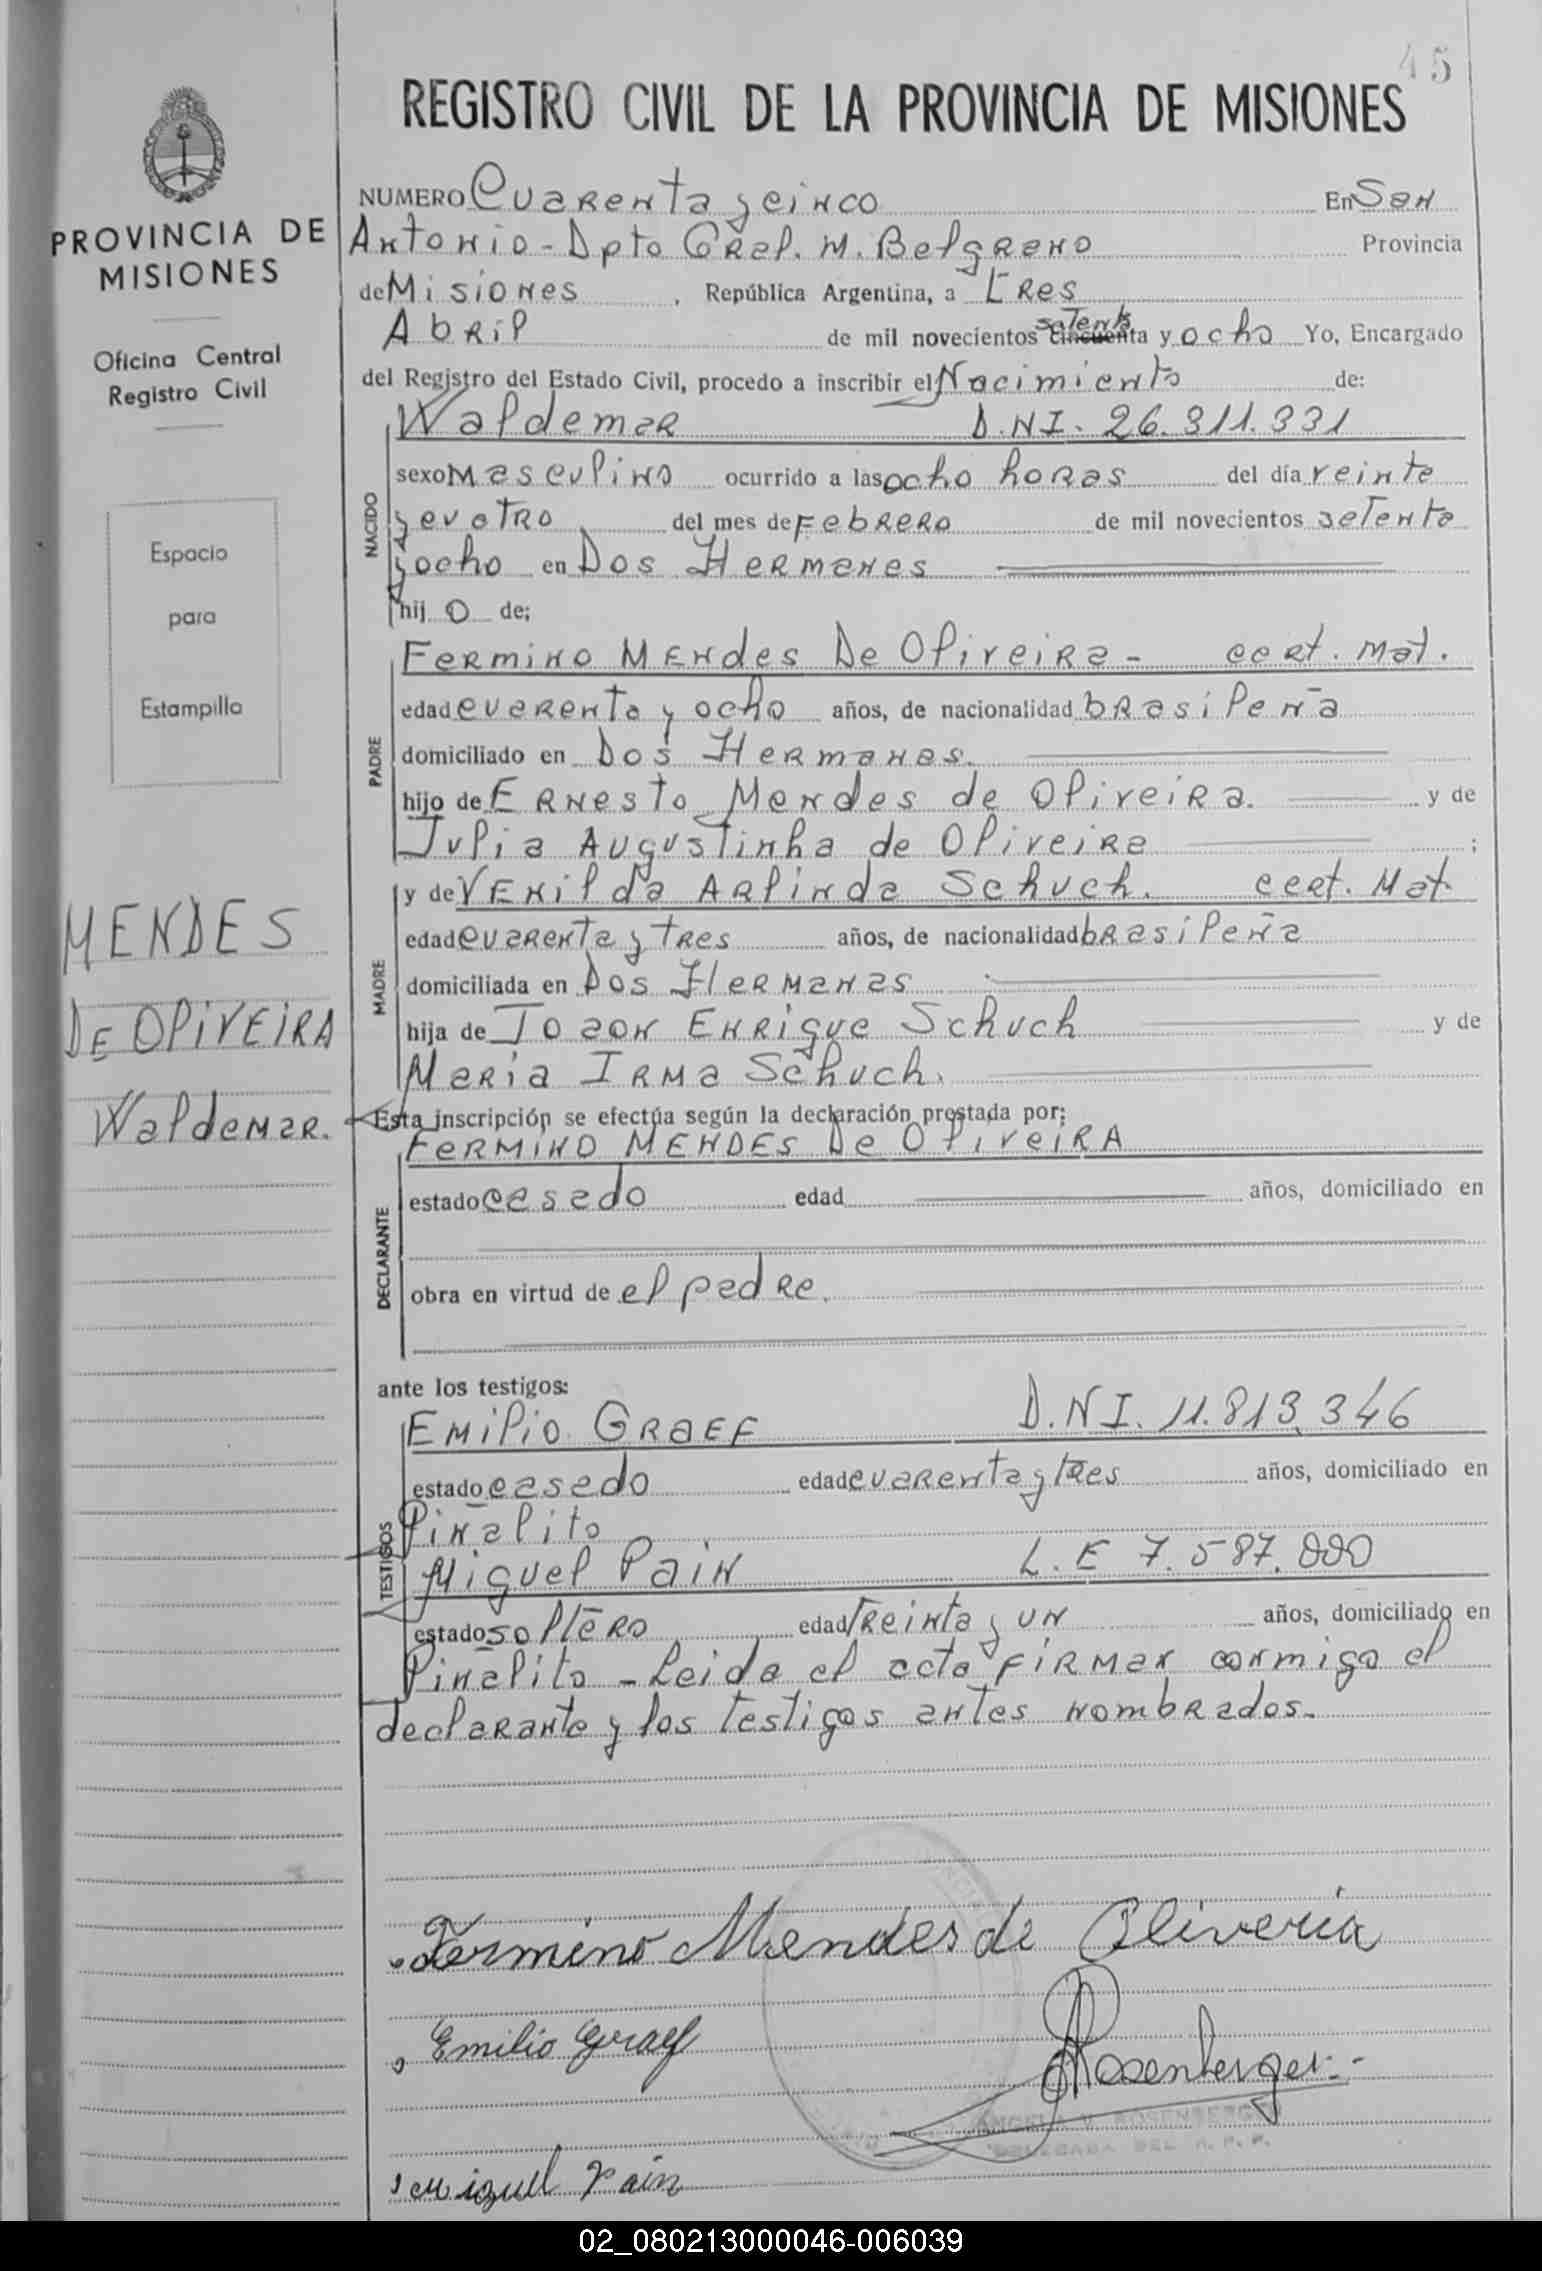 45
REGISTRO CIVIL DE LA PROVINCIA DE MISIONES
PROVINCIA DE
MISIONES
Oficina Central
Registro Civil
Espacio
para
Estampilla
MENDES
DE OLIVEIRA
Waldemar.
NUMERO Cuarenta y cinco En San
Antonio - Dpto Gral. M. Belgrano Provincia
de Misiones, República Argentina, a tres
Abril de mil novecientos setenta cincuenta y ocho Yo, Encargado
del Registro del Estado Civil, procedo a inscribir el Nacimiento de:
NACIDO
Waldemar D.NI. 26.311.331
sexo Masculino ocurrido a las ocho horas del día veinte
y cuatro del mes de Febrero de mil novecientos setenta
y ocho en Dos Hermanas
hij o de;
PADRE
Fermino Mendes De Oliveira - cert. mat.
edad cuarenta y ocho años, de nacionalidad brasileña
domiciliado en Dos Hermanas.
hijo de Ernesto Mendes de Oliveira. y de
Julia Augustinha de Oliveira ;
MADRE
y de Venilda Arlinda Schuch. cert. Mat.
edad cuarenta y tres años, de nacionalidad brasileña
domiciliada en Dos Hermanas
hija de Joaon Enrique Schuch y de
Maria Irma Schuch.
Esta inscripción se efectúa según la declaración prestada por;
DECLARANTE
Fermino Mendes De Oliveira
estado casado edad años, domiciliado en
obra en virtud de el padre.
ante los testigos:
TESTIGOS
Emilio Graef D.NI. 11.813.346
estado casado edad cuarenta y tres años, domiciliado en
Piñalito
Miguel Pain L.E 7.587.000
estado soltero edad treinta y un años, domiciliado en
Piñalito - Leida el acta firman conmigo el
declarante y los testigos antes nombrados.
Fermino Mendes de Oliveria
Emilio Graef
Rosenberger
ANGELA V. ROSENBERGER
DELEGADA DEL R.P.P.
Miguel Pain
02_080213000046-006039